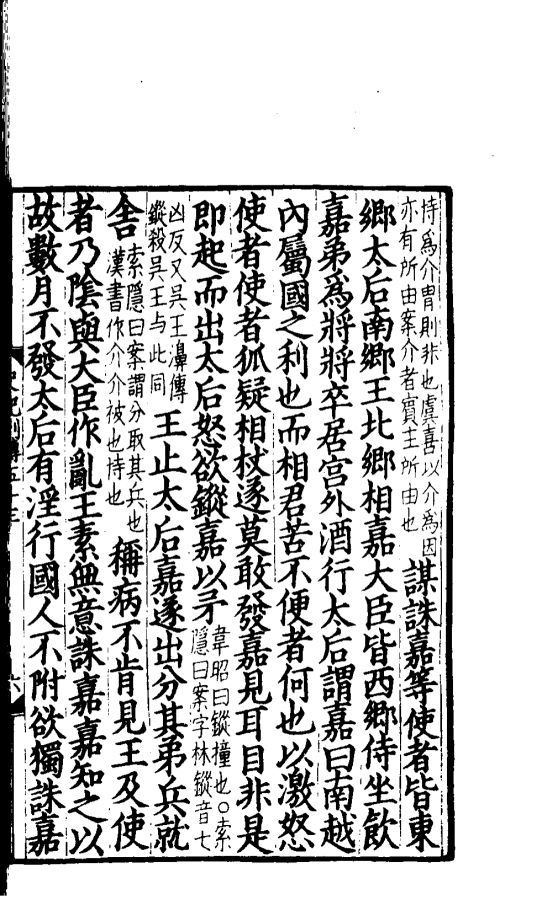 恃爲介胄則非也虞喜以介爲因
亦有所由案介者賓主所由也
謀誅嘉等使者皆東
鄉太后南鄉王北鄉相嘉大臣皆西鄉侍坐飲
嘉弟爲將將卒居宫外酒行太后謂嘉曰南越
內屬國之利也而相君苦不便者何也以激怒
使者使者狐疑相杖遂莫敢發嘉見耳目非是
即起而出太后怒欲鏦嘉以矛
韋昭曰鏦撞也○索
隱曰案字林鏦音七
凶反又吳王濞傳
鏦殺吳王与此同
王止太后嘉遂出分其弟兵就
舍
索隱曰案謂分取其兵也
漢書作介介被也恃也
稱病不肯見王及使
者乃隂與大臣作亂王素無意誅嘉嘉知之以
故數月不發太后有淫行國人不附欲獨誅嘉